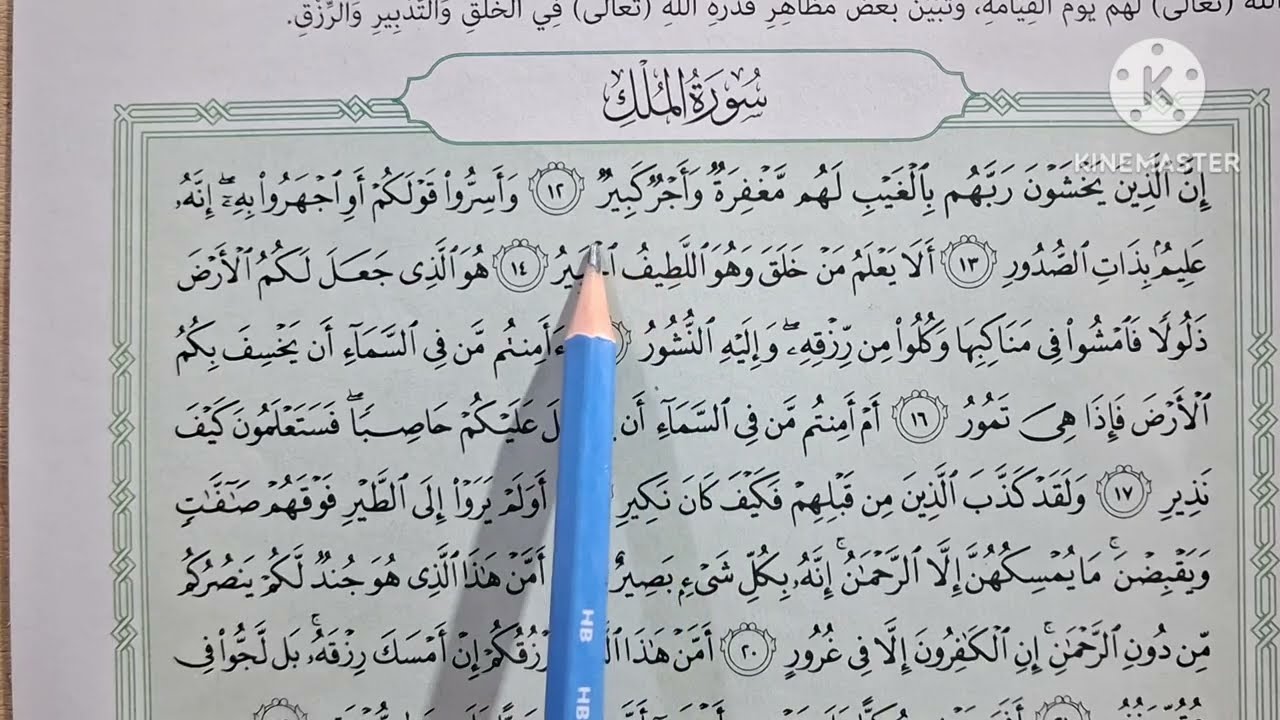 الله (تعالى) لهم يوم القيامة، وتبين بعض مظاهر قدرة الله (تعالى) في الخلق والتدبير والرزق.
سُورَةُ المُلْكِ
KINEMASTER
إِنَّ ٱلَّذِينَ يَخْشَوْنَ رَبَّهُم بِٱلْغَيْبِ لَهُم مَّغْفِرَةٌ وَأَجْرٌ كَبِيرٌ ١٢ وَأَسِرُّوا۟ قَوْلَكُمْ أَوِ ٱجْهَرُوا۟ بِهِۦٓ ۖ إِنَّهُۥ
عَلِيمٌۢ بِذَاتِ ٱلصُّدُورِ ١٣ أَلَا يَعْلَمُ مَنْ خَلَقَ وَهُوَ ٱللَّطِيفُ ١٤ هُوَ ٱلَّذِى جَعَلَ لَكُمُ ٱلْأَرْضَ
ذَلُولًا فَٱمْشُوا۟ فِى مَنَاكِبِهَا وَكُلُوا۟ مِن رِّزْقِهِۦ ۖ وَإِلَيْهِ ٱلنُّشُورُ ءَأَمِنتُم مَّن فِى ٱلسَّمَآءِ أَن يَخْسِفَ بِكُمُ
ٱلْأَرْضَ فَإِذَا هِىَ تَمُورُ ١٦ أَمْ أَمِنتُم مَّن فِى ٱلسَّمَآءِ أَن عَلَيْكُمْ حَاصِبًا ۖ فَسَتَعْلَمُونَ كَيْفَ
نَذِيرِ ١٧ وَلَقَدْ كَذَّبَ ٱلَّذِينَ مِن قَبْلِهِمْ فَكَيْفَ كَانَ نَكِيرِ أَوَلَمْ يَرَوْا۟ إِلَى ٱلطَّيْرِ فَوْقَهُمْ صَـٰٓفَّـٰتٍ
وَيَقْبِضْنَ ۚ مَا يُمْسِكُهُنَّ إِلَّا ٱلرَّحْمَـٰنُ ۚ إِنَّهُۥ بِكُلِّ شَىْءٍۭ بَصِيرٌ أَمَّنْ هَـٰذَا ٱلَّذِى هُوَ جُندٌ لَّكُمْ يَنصُرُكُم
مِّن دُونِ ٱلرَّحْمَـٰنِ ۚ إِنِ ٱلْكَـٰفِرُونَ إِلَّا فِى غُرُورٍ ٢٠ أَمَّنْ هَـٰذَا إِنْ أَمْسَكَ رِزْقَهُۥ ۚ بَل لَّجُّوا۟ فِى
HB
HB